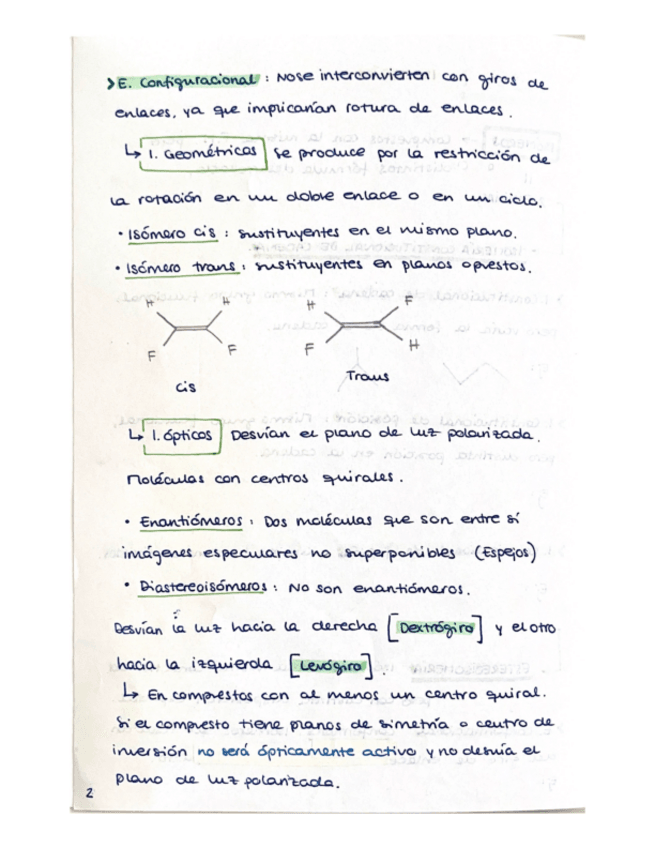 >E. Configuracional : No se interconvierten con giros de
enlaces, ya que implicarían rotura de enlaces.
↳ I. Geométricos Se produce por la restricción de
la rotación en un doble enlace o en un ciclo.
• Isómero cis : sustituyentes en el mismo plano.
• Isómero trans : sustituyentes en planos opuestos.
H H H F
F F F H
cis Trans
↳ I. ópticos Desvían el plano de luz polarizada.
Moléculas con centros quirales.
• Enantiómeros : Dos moléculas que son entre sí
imágenes especulares no superponibles (Espejos)
• Diastereoisómeros : No son enantiómeros.
Desvían la luz hacia la derecha [Dextrógiro] y el otro
hacia la izquierda [Levógiro].
↳ En compuestos con al menos un centro quiral.
Si el compuesto tiene planos de simetría o centro de
inversión no será ópticamente activo y no desvía el
plano de luz polarizada.
2